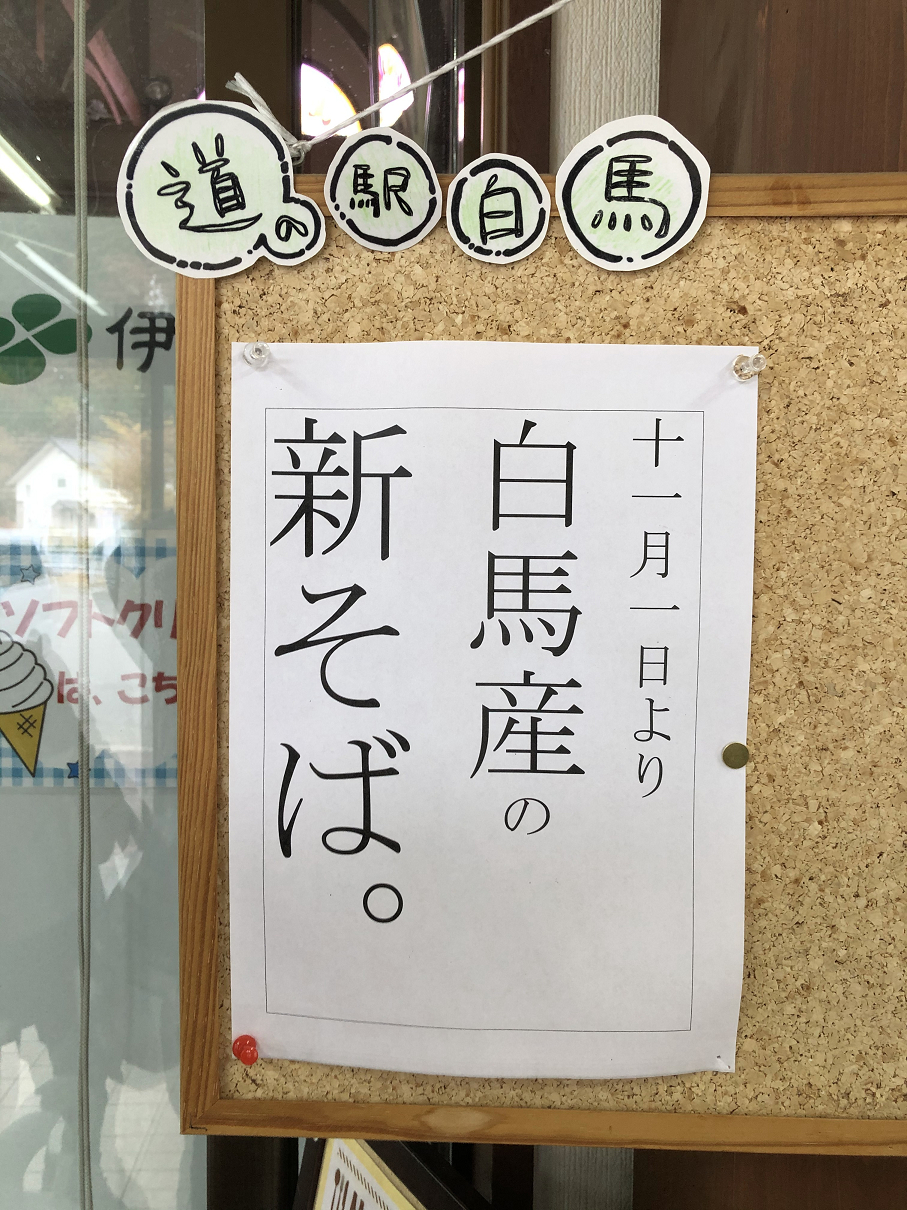 道の駅白馬
十一月一日より
白馬産の
新そば。
伊
ソフトクリ
は、こち